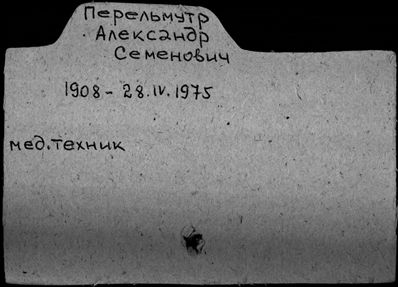 Перельмутр
Александр
Семенович
1908 - 28.IV.1975
мед.техник